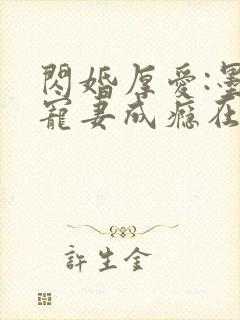 閃婚厚愛:墨
寵妻成癮在
許生金